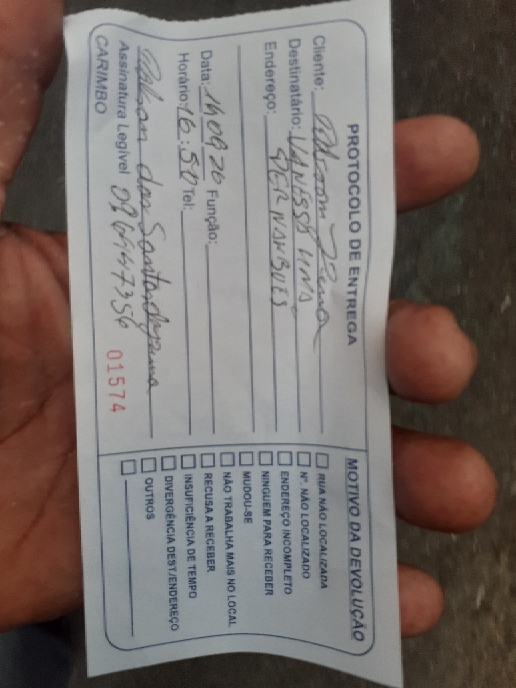 PROTOCOLO DE ENTREGA
Cliente:
Destinatário: VANESSA LIMA
Endereço: PERNAMBUES
Data: 14 09 26 Função:
Horário: 16:50 Tel:
dos Santos
Assinatura Legível
CARIMBO
01574
MOTIVO DA DEVOLUÇÃO
RUA NÃO LOCALIZADA
Nº. NÃO LOCALIZADO
ENDEREÇO INCOMPLETO
NINGUEM PARA RECEBER
MUDOU-SE
NÃO TRABALHA MAIS NO LOCAL
RECUSA A RECEBER
INSUFICIÊNCIA DE TEMPO
DIVERGÊNCIA DEST./ENDEREÇO
OUTROS